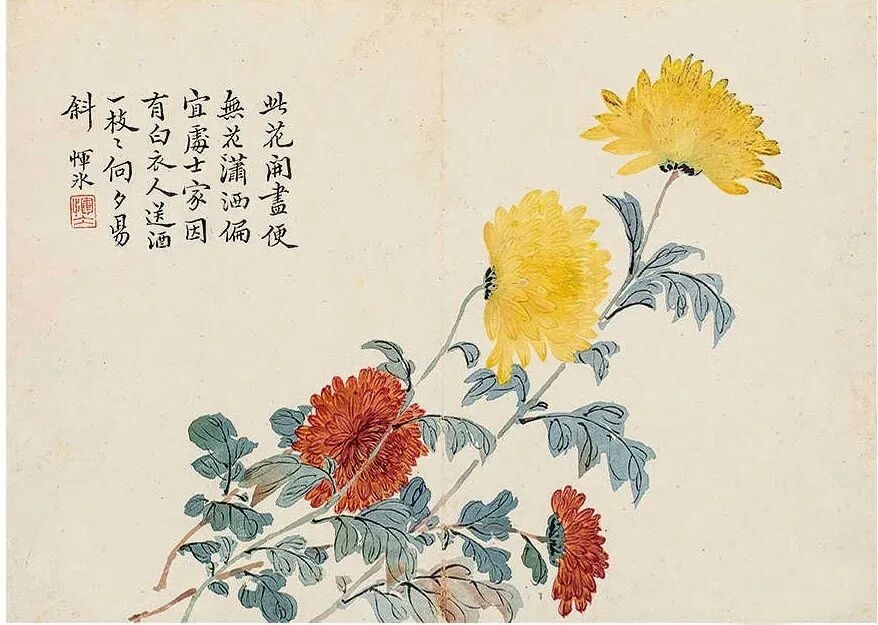 此花開盡便
無花瀟洒偏
宜處士家因
有白衣人送酒
一枝〻向夕昜
斜 惲冰